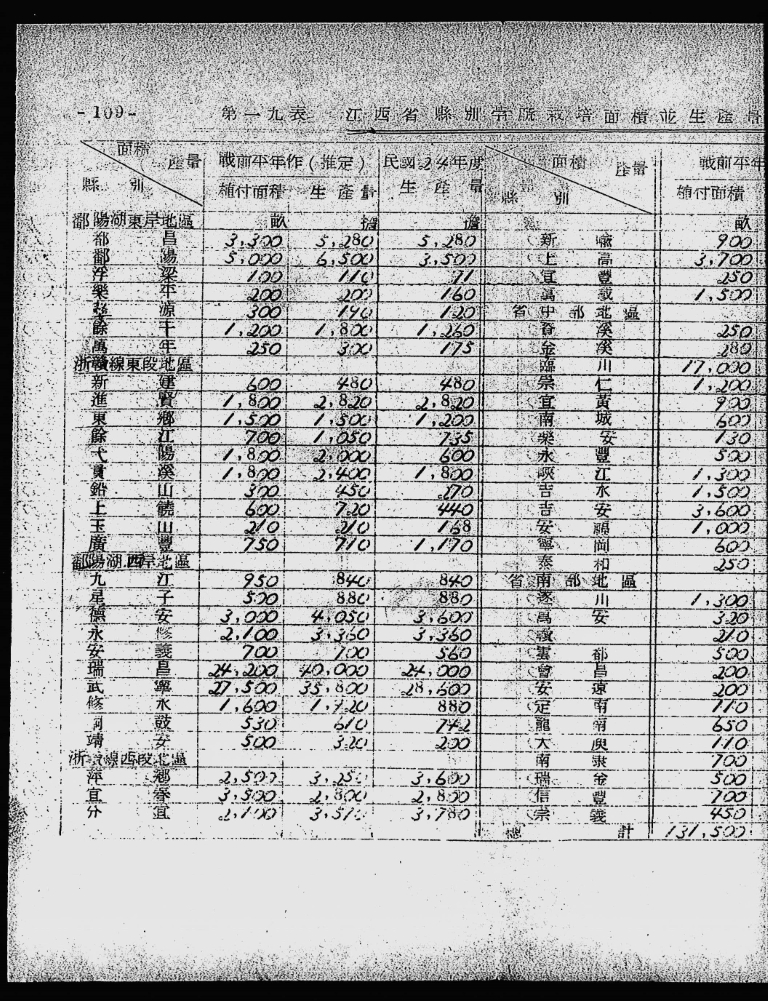 -109-
第一九表 江西省縣別苧蔴栽培面積並生產量
面積 產量 縣別 戰前平年作(推定) 民國24年度 面積 產量 縣別 戰前平年
植付面積 生產量 生產量 植付面積
鄱陽湖東岸地區 畝 擔 擔 畝
都昌 3,300 5,280 5,280 新喻 900
鄱陽 5,000 6,500 3,500 上高 3,700
浮梁 100 110 71 宜豐 250
樂平 200 200 160 萬載 1,500
源 300 140 120 省中部地區
餘干 1,200 1,800 1,260 資溪 250
萬年 250 300 175 金溪 280
浙贛線東段地區 臨川 17,000
新建 600 480 480 崇仁 1,200
進賢 1,800 2,820 2,820 宜黃 900
東鄉 1,500 1,500 1,200 南城 600
餘江 700 1,050 735 樂安 130
弋陽 1,800 2,000 600 永豐 500
貴溪 1,800 2,400 1,800 峽江 1,300
鉛山 300 450 270 吉水 1,500
上饒 600 720 440 吉安 3,600
玉山 210 210 168 安福 1,000
廣豐 750 710 1,170 寧岡 600
鄱陽湖西岸地區 泰和 250
九江 950 840 840 省南部地區
星子 500 880 880 遂川 1,300
德安 3,000 4,050 3,600 萬安 320
永修 2,100 3,360 3,360 210
安義 700 700 560 雩都 500
瑞昌 24,200 40,000 24,000 會昌 200
武寧 27,500 35,800 28,600 安遠 200
修水 1,600 880 定南 110
530 610 742 龍南 650
靖安 500 320 200 大庾 110
浙贛線西段地區 南康 700
萍鄉 2,500 3,600 瑞金 500
宜春 3,500 2,800 2,800 信豐 700
分宜 2,100 3,780 崇義 450
總計 131,500